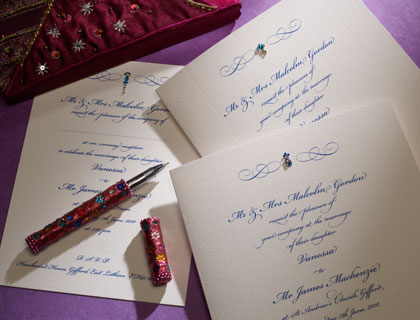 Mr & Mrs Malcolm Gordon
request the pleasure of the company of
at an evening reception
to celebrate the marriage of their daughter
Vanessa
to
Mr James
7th June, 2010
R.S.V.P.
House, Gifford, East Lothian
Mr & Mrs Malcolm Gordon
request the pleasure of
your company at the marriage
of their daughter
Vanessa
Mr & Mrs Malcolm Gordon
request the pleasure of
your company at the marriage
of their daughter
Vanessa
to
Mr James Mackenzie
at St Andrew's Church, Gifford
7th June, 2010